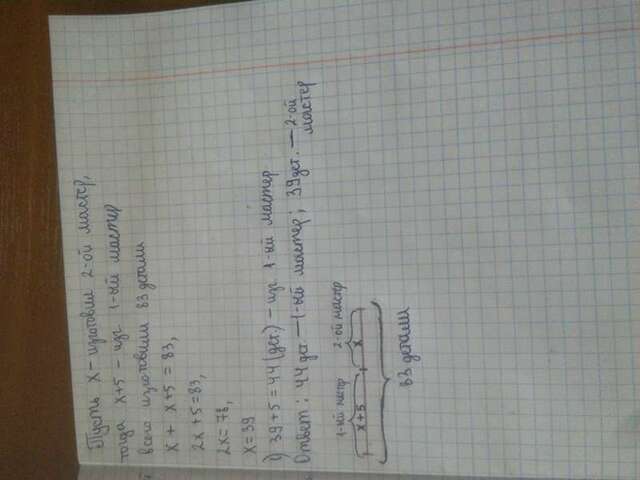 Пусть x - изготовил 2-ой мастер,
тогда x+5 - изг 1-ый мастер
всего изготовили 83 детали
x + x+5 = 83,
2x+5=83,
2x=78,
x=39
1) 39+5=44(дет.) - изг 1-ый мастер
Ответ: 44дет.-1-ый мастер; 39дет.-2-ой
мастер
1-ый мастр 2-ой мастр
x+5 x
83 детали